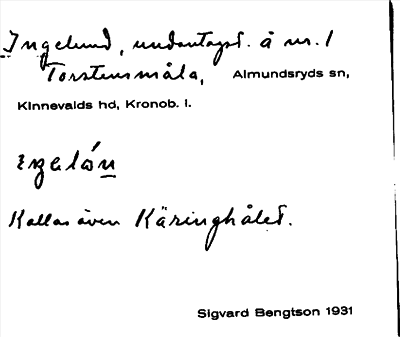 Ingelund, undantagsl. å nr. 1
Torstensmåla, Almundsryds sn,
Kinnevalds hd, Kronob. l.
Kallas även Käringhålet.
Sigvard Bengtson 1931